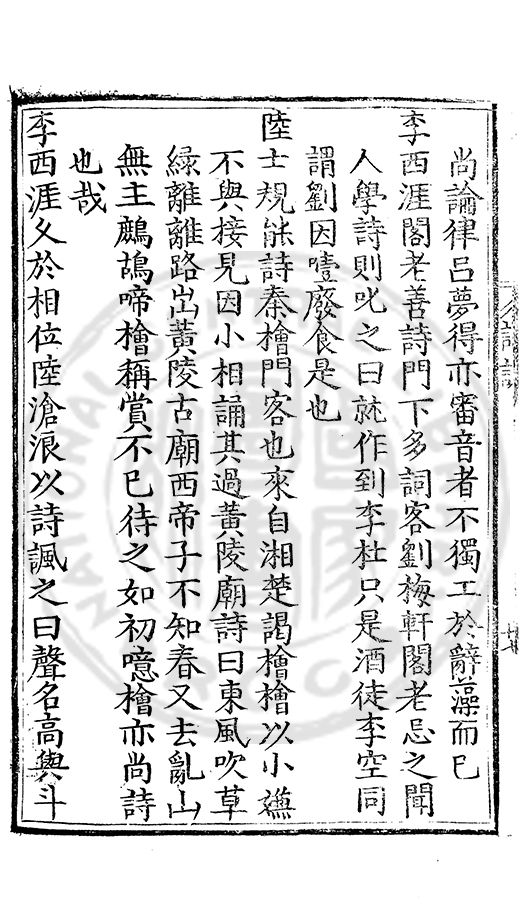 尚論律呂夢得亦審音者不獨工於辭藻而已
李西涯閣老善詩門下多詞客劉梅軒閣老忌之聞
人學詩則叱之曰就作到李杜只是酒徒李空同
謂劉因噎廢食是也
陸士規能詩秦檜門客也來自湘楚謁檜檜以小嫌
不與接見因小相誦其過黃陵廟詩曰東風吹草
綠離離路出黃陵古廟西帝子不知春又去亂山
無主鷓鴣啼檜稱賞不已待之如初噫檜亦尚詩
也哉
李西涯久於相位陸滄浪以詩諷之曰聲名高與斗